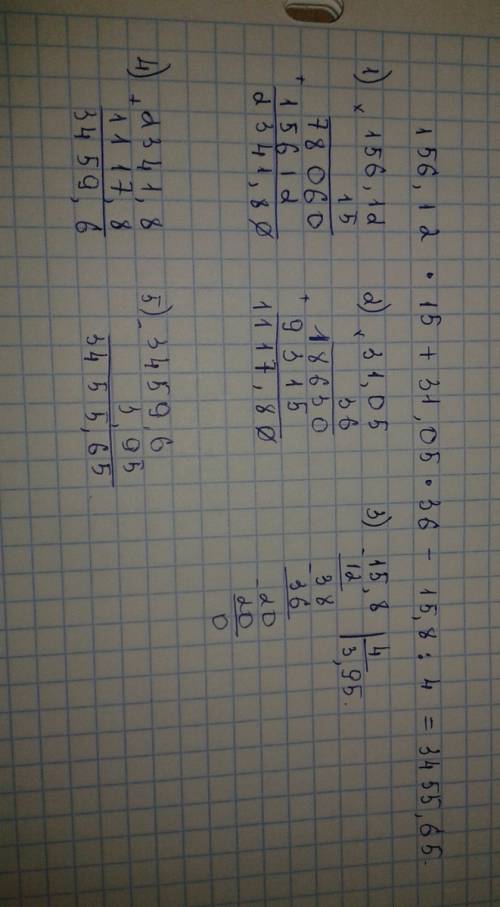 156,12 · 15 + 31,05 · 36 - 15,8 : 4 = 3455,65.
1) × 156,12
15
78060
+ 15612
2341,80
2) × 31,05
36
18630
+ 9315
1117,80
3) - 15,8 | 4
12 | 3,95.
- 38
36
- 20
20
0
4) + 2341,8
1117,8
3459,6
5) - 3459,6
3,95
3455,65